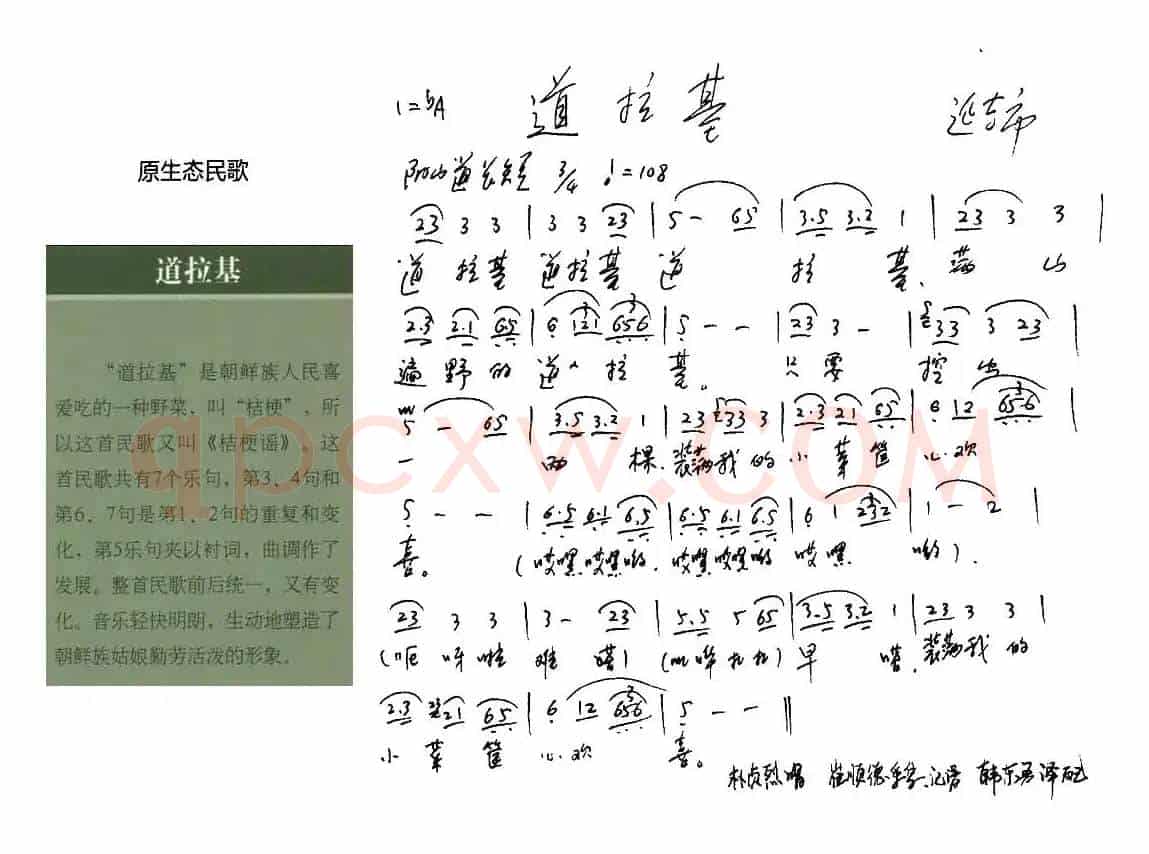 原生态民歌
道拉基
“道拉基”是朝鲜族人民喜
爱吃的一种野菜，叫“桔梗”，所
以这首民歌又叫《桔梗谣》，这
首民歌共有7个乐句，第3、4句和
第6、7句是第1、2句的重复和变
化，第5乐句夹以衬词，曲调作了
发展。整首民歌前后统一，又有变
化。音乐轻快明朗，生动地塑造了
朝鲜族姑娘勤劳活泼的形象。
1=♭A 道拉基 延吉市
长短 3/4 ♩=108
23 3 3 | 3 3 23 | 5 - 65 | 3.5 3.2 1 | 23 3 3 |
道 拉基 道拉基 道 拉 基，满 山
2.3 2.1 65 | 6 121 656 | 5 - - | 23 3 - | 33 3 23 |
遍 野 的 道 拉 基。 只 要 挖 出
5 - 65 | 3.5 3.2 1 | 23 33 3 | 2.3 21 65 | 6 12 656 |
一 两 棵，装满我 的 小 菜 筐 心 欢
5 - - | 6.5 6.1 6.5 | 6.5 6.1 6.5 | 6 1 232 | 1 - 2 |
喜。 (哎嘿哎嘿哟，哎嘿哎嘿哟 哎嘿 哟)，
23 3 3 | 3 - 23 | 5.5 5 65 | 3.5 3.2 1 | 23 3 3 |
呀 装满我 的
2.3 21 65 | 6 12 656 | 5 - - ‖
小 菜 筐 心 欢 喜。
朴贞烈唱 崔顺德采录、记谱 韩东吾译配
qpcxw.COM